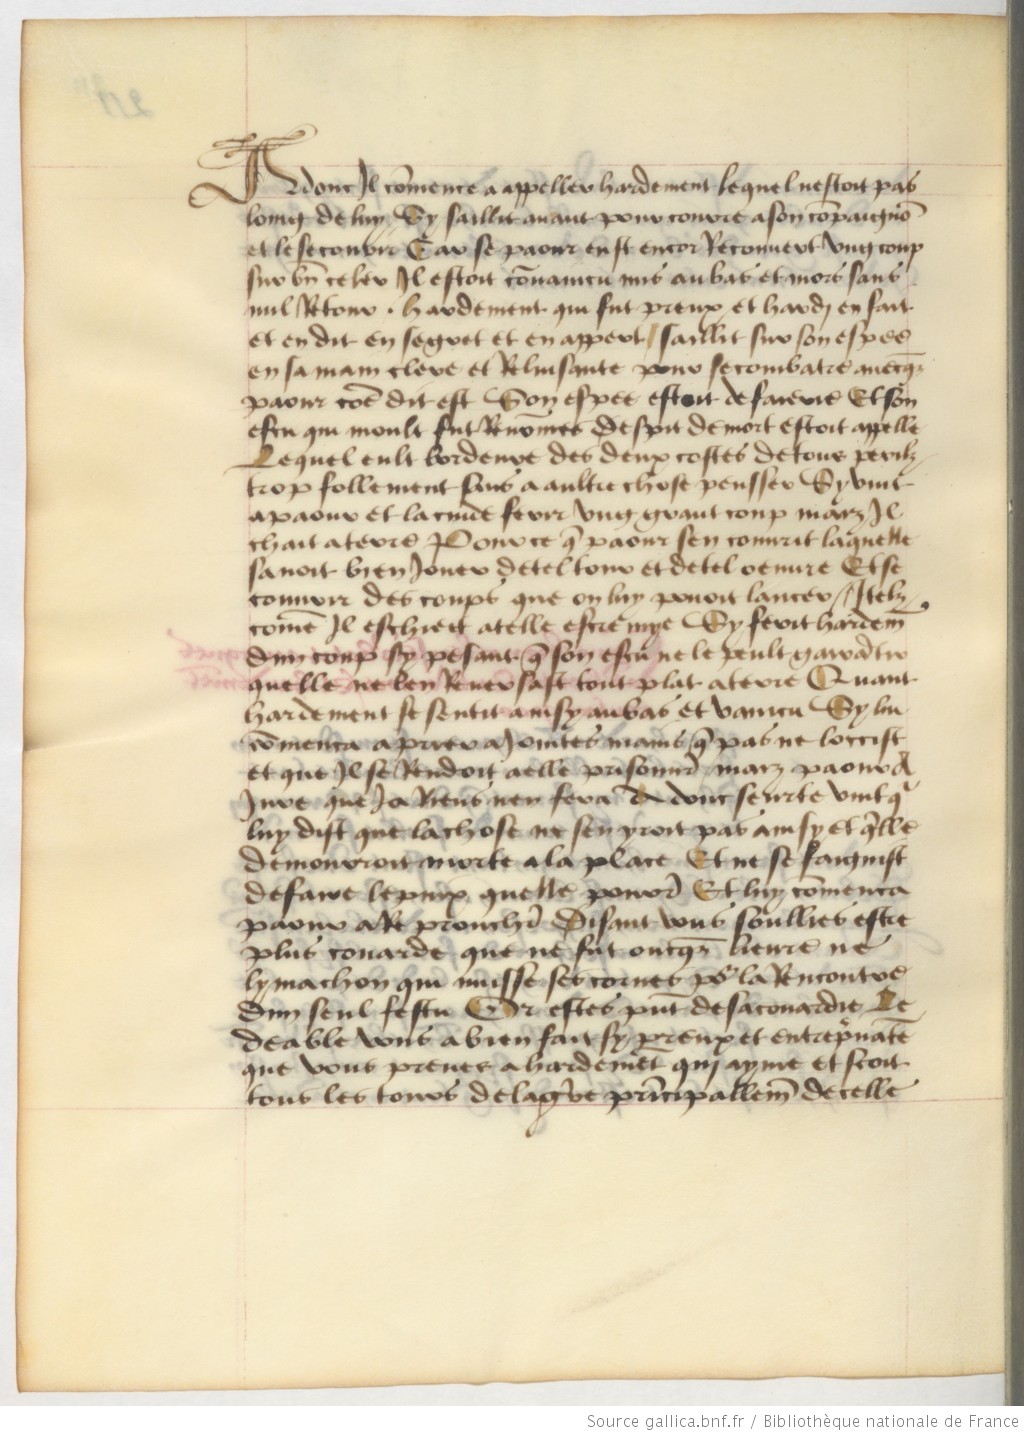 Adonc Il cōmence a appeller hardement lequel nestoit pas
loing de luy Sy saillit auant pour courre a son cōpaignō
et le secourir Car se paour eust encor Recouuert vng coup
sur bn̄ celer Il estoit cōuaincu mis au bas et mors sans
nul Retour . hardement qui fut preux et hardj en fait
et en dit en segret et en appert / saillit sur son espee
en sa main clere et Reluisante pour se combatre auecq̄
paour cōe dit est Son espee estoit de faierie Et son
escu qui moult fut Renōmes despit de mort estoit appelle
Lequel eult bordeure des deux costes de tous perilz
trop follement sans a aultre chose pensser Sy vint
a paour et la cuide ferir vng grant coup marz Il
chait a terre Pour ce q̄ paour sen couurit laquelle
sauoit bien Jouer de tel tour et de tel oeuure Et se
couurir des coups que on luy pouoit lancer / Itelz
cōme Il eschiert a telle escremye Sy ferit hardem̄
dun coup sy pesant q̄ son escu ne le peult garādir
quelle ne len Renuersast tout plat a terre Quant
hardement se sentit ainsy au bas et vaincu Sy lui
cōmenca a prier a Jointes mains q̄ pas ne loccist
et que Il se Rendoit a elle prisonnier marz paour
Jure que Ja Riens nen fera Adonc seurte vint q̄
luy dist que la chose ne sen yroit pas ainsy et q̄lle
demourroit morte a la place Et ne se faignist
de faire le pis quelle pourr̄ Et luy cōmenca
paour a Reprouchier Disant vous soullies estre
plus couarde que ne fut oncq̄ lieure ne
lymachon qui muisse ses cornes po᷑ la Rencontre
dun seul festu Or estes put̄ de sa couardie Le
deable vous a bien fait sy preux et entrepr̄nāte
que vous prenes a hardemēt qui ayme et scoit
tous les tours de la gr̄re prīcipallem̄ de celle